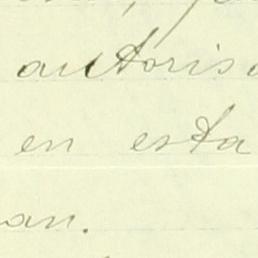 autoris
en esta
an.